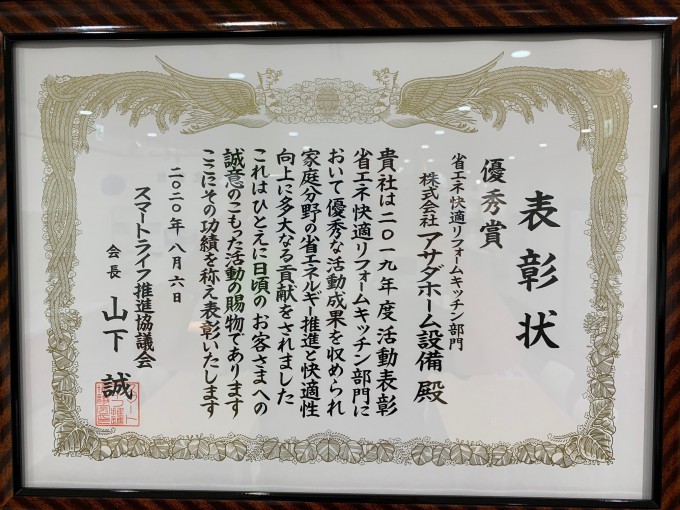 表彰状
優秀賞
省エネ快適リフォームキッチン部門
株式会社アサダホーム設備 殿
貴社は二〇一九年度活動表彰
省エネ快適リフォームキッチン部門に
おいて優秀な活動成果を収められ
家庭分野の省エネルギー推進と快適性
向上に多大なる貢献をされました
これはひとえに日頃の お客さまへの
誠意のこもった活動の賜物であります
ここにその功績を称え表彰いたします
二〇二〇年八月六日
スマートライフ推進協議会
会長 山下 誠